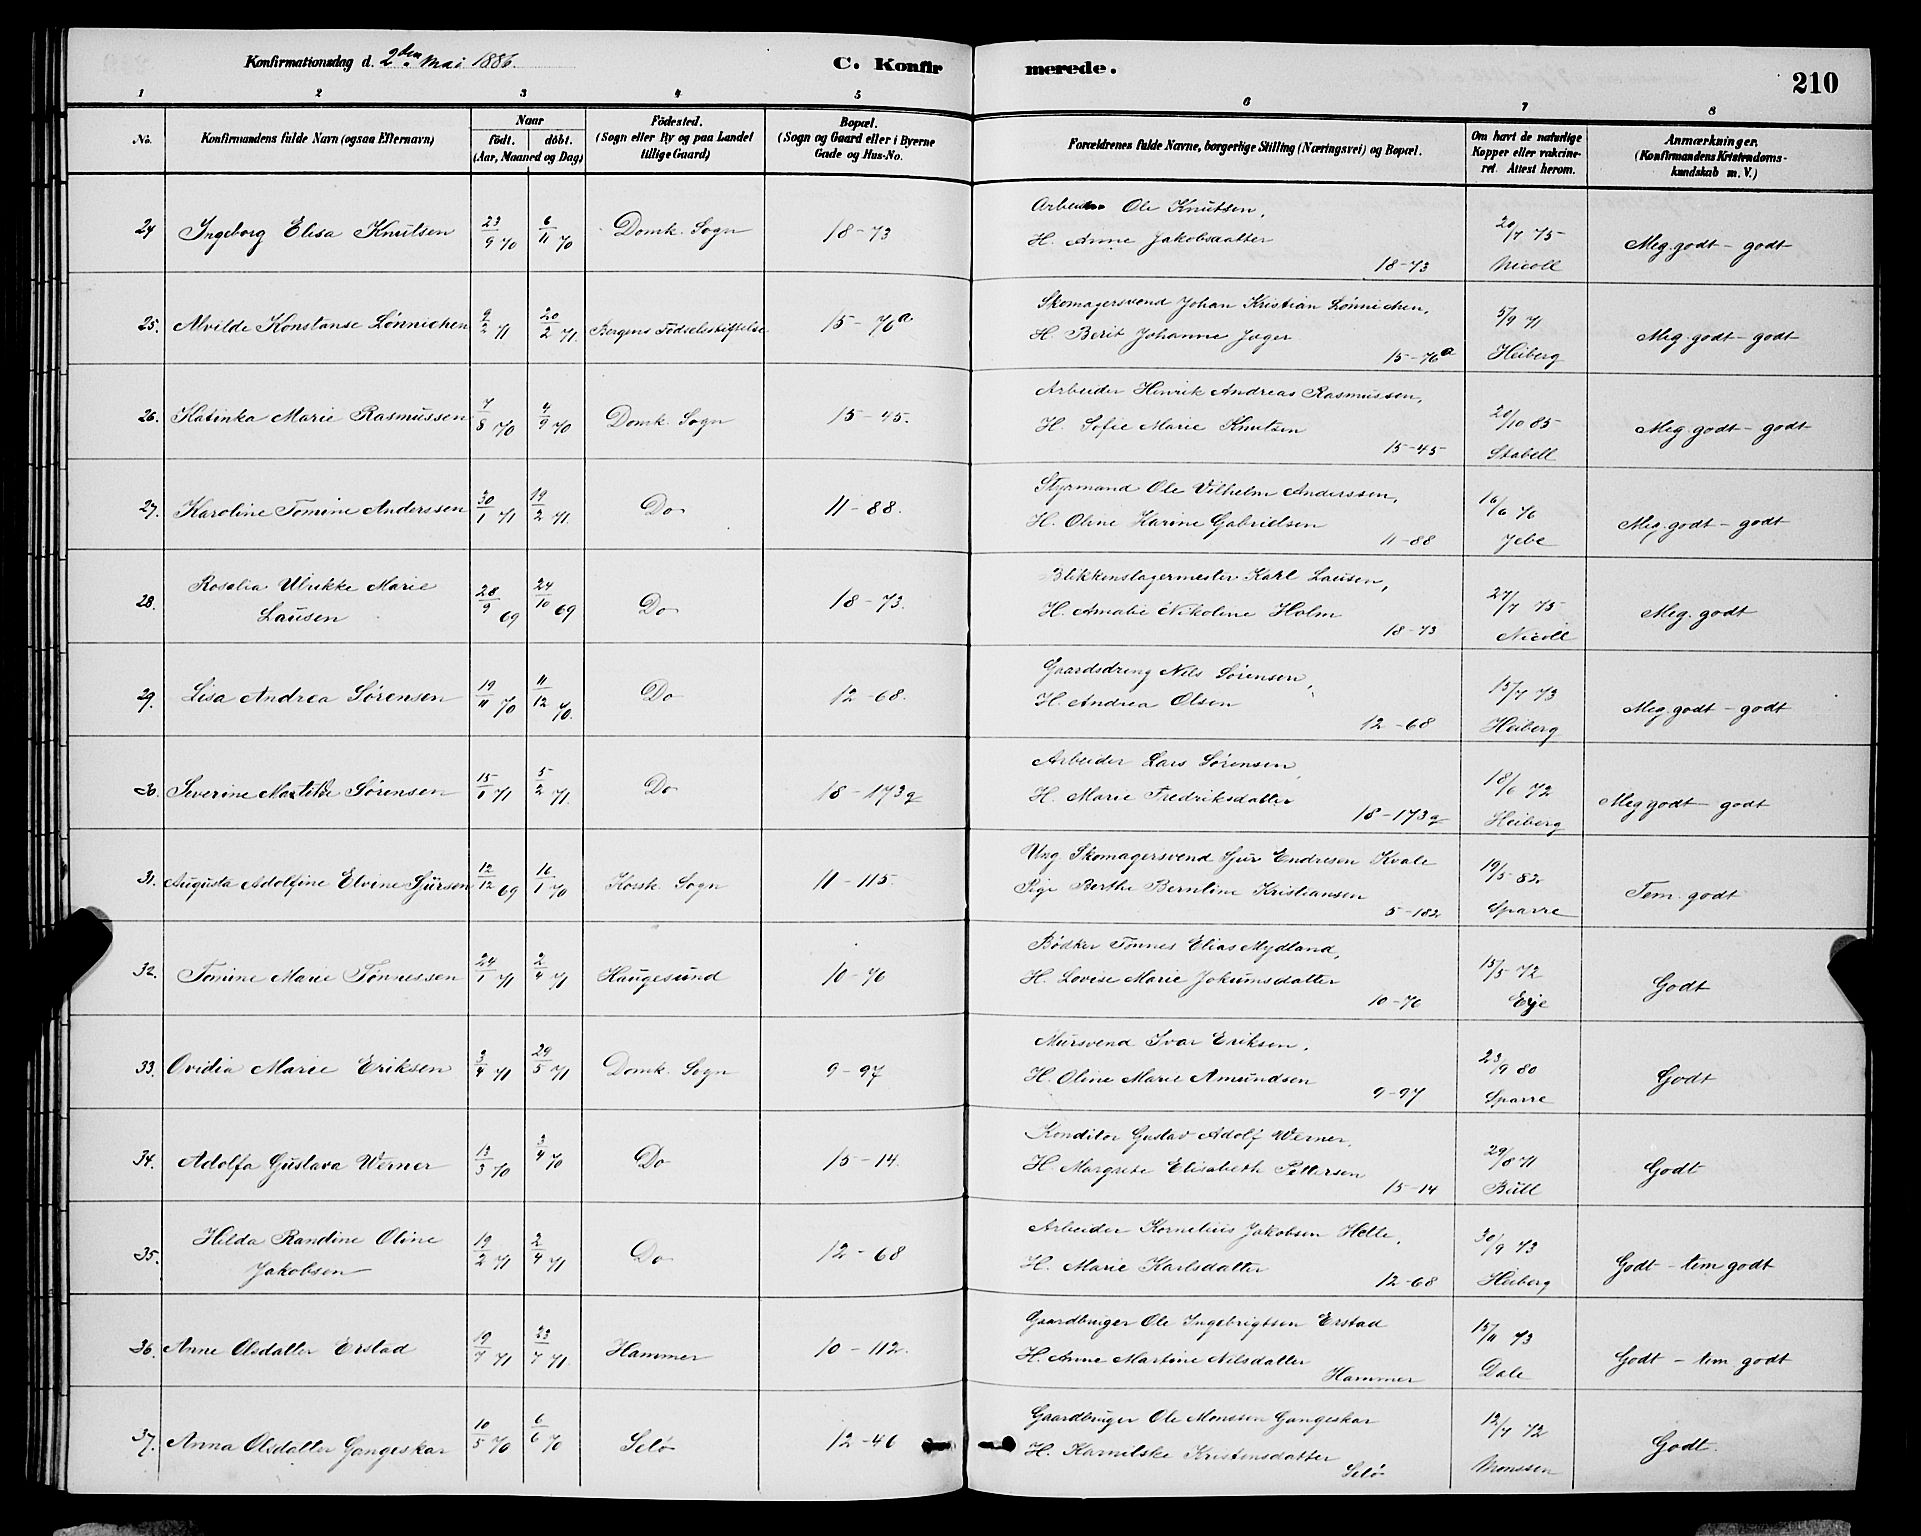 Konfirmationsdag d. 2den Mai 1886.
C. Konfirmerede.
210
1 2 3 4 5 6 7 8
No. Konfirmandens fulde Navn (ogsaa Efternavn) Naar født. døbt. (Aar, Maaned og Dag) Fødested. (Sogn eller By og paa Landet tillige Gaard) Bopæl. (Sogn og Gaard eller i Byerne Gade og Hus-No. Forældrenes fulde Navne, borgerlige Stilling (Næringsvei) og Bopæl. Om havt de naturlige Kopper eller vakcineret. Attest herom. Anmærkninger. (Konfirmandens Kristendomskundskab m. V.)
24 Ingeborg Elisa Knutsen 23/9 70 6/11 70 Domk. Sogn 18-73 Arbeider Ole Knutsen, 20/7 75 Meg. godt - godt
H. Anne Jakobsdatter 18-73 Nicoll
25. Alvilde Konstanse Lønnichen 9/2 71 20/2 71. Bergens Fødselsstiftelse 15-76a Skomagersvend Johan Kristian Lønnichen, 5/9 71 Meg. godt - godt
H. Berit Johanne Jager 15-76a Heiberg
26. Katinka Marie Rasmussen 7/8 70 4/9 70 Domk. Sogn 15-45. Arbeider Henrik Andreas Rasmussen, 20/10 85 Meg. godt - godt
H. Sofie Marie Knutsen 15-45 Stabell
27. Karoline Tomine Anderssen 30/1 71 19/2 71. Do 11-88. Styrmand Ole Vilhelm Anderssen, 16/6 76 Meg. godt - godt
H. Oline Karine Gabrielsen 11-88 Jebe
28. Rosalia Ulrikke Marie Lausen 28/9 69 24/10 69 Do 18-73. Blikkenslagermester Karl Lausen, 27/7 75 Meg. godt
H. Amalie Nikoline Holm 18-73 Nicoll
29. Lisa Andrea Sørensen 19/11 70 11/12 70. Do 12-68. Gaardsdreng Nils Sørensen, 15/7 73 Meg. godt - godt
H. Andrea Olsen 12-68 Heiberg
30. Severine Matilde Sørensen 15/1 71 5/2 71. Do 18-173g Arbeider Lars Sørensen, 18/6 72 Meg godt - godt
H. Marie Fredriksdatter 18-173g Heiberg
31. Augusta Adolfine Elvine Sjursen 12/12 69 16/1 70 Korsk. Sogn 11-115. Ung Skomagersvend Sjur Endresen Kvale 19/5 82 Tem. godt
Pige Berthe Berntine Kristiansen 5-182 Sparre
32. Tomine Marie Tønnessen 24/1 71 2/4 71 Haugesund 10-76 Bødker Tønnes Elias Mydland, 15/5 72 Godt
H. Lovise Marie Jokumsdatter 10-76 Eije
33. Ovidia Marie Eriksen 3/4 71 29/5 71 Domk. Sogn 9-97 Mursvend Ivar Eriksen, 23/9 80 Godt
H. Oline Marie Amundsen 9-97 Sparre
34. Adolfa Gustava Werner 13/3 70 3/4 70 Do 15-14. Konditor Gustav Adolf Werner, 29/8 71 Godt
H. Margrete Elisabeth Pettersen 15-14 Bull
35. Hilda Randine Oline Jakobsen 19/2 71 2/4 71 Do 12-68 Arbeider Kornelius Jakobsen Helle, 30/9 73 Godt - tem godt
H. Marie Karlsdatter 12-68 Heiberg
36. Anne Olsdatter Erstad 19/7 71 23/7 71 Hammer 10-112. Gaardbruger Ole Ingebrigtsen Erstad 15/11 73 Godt - tem godt
H. Anna Martine Nilsdatter Hammer Dale
37. Anna Olsdatter Gangeskar 10/5 70 6/6 70 Selø 12-46 Gaardbruger Ole Monssen Gangeskar 12/7 72 Godt.
H. Kamilske Kristensdatter Selø Monssen